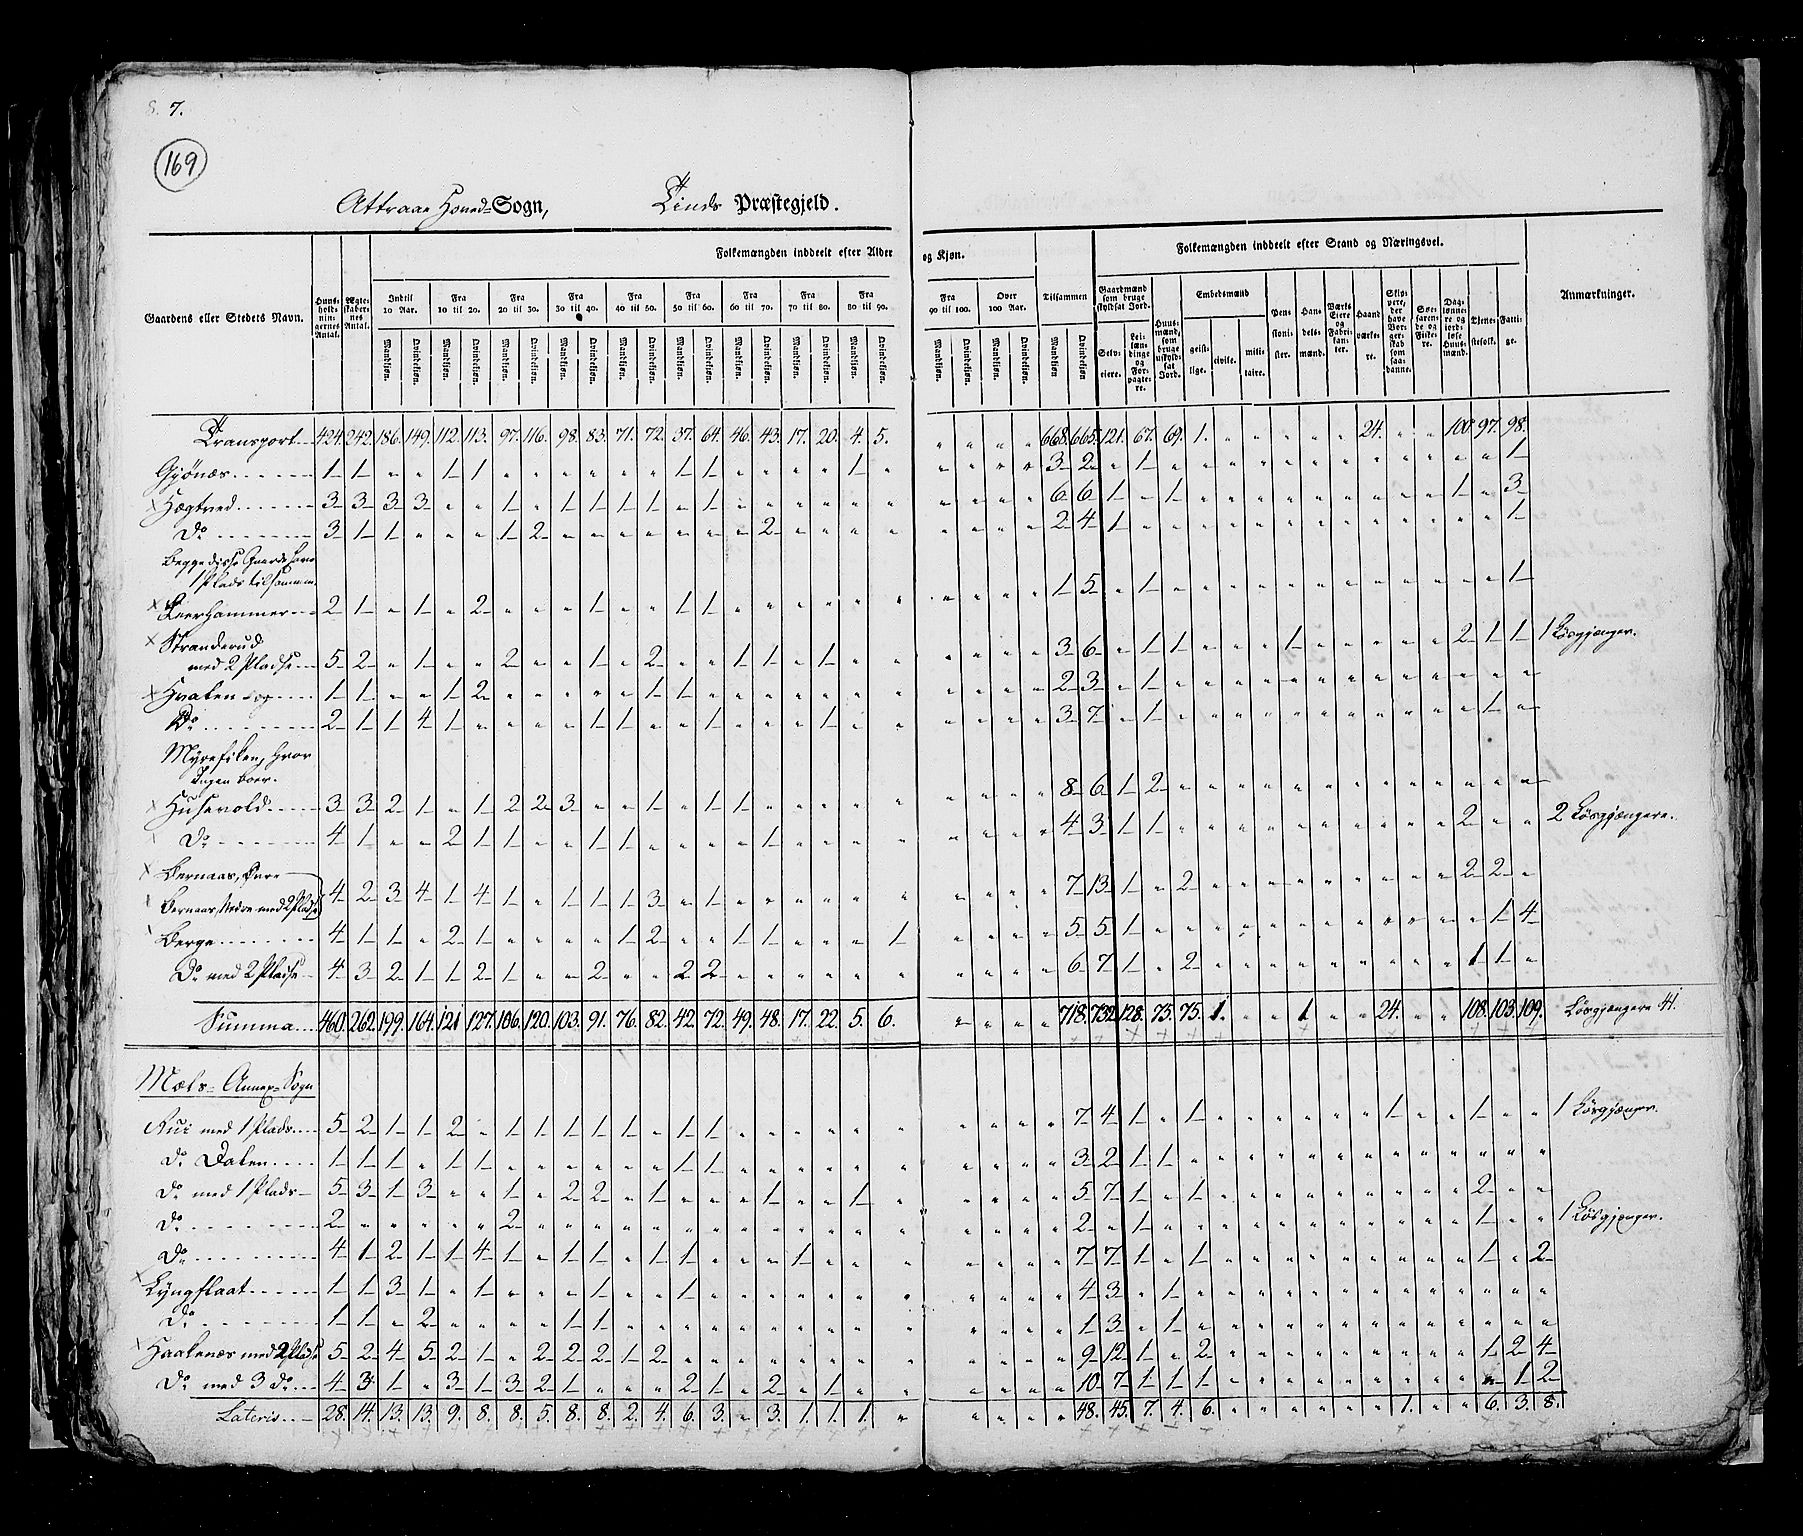 8. 7.
169
Attraae Hoved-Sogn, Tinds Præstegjeld.
Folkemængden inddeelt efter Alder og Kjøn. Folkemængden inddeelt efter Stand og Næringsvei.
Gaardens eller Stedets Navn. Huus-holdnin-gernes Antal. Ægte-skaber-nes Antal. Indtil 10 Aar. Fra 10 til 20. Fra 20 til 30. Fra 30 til 40. Fra 40 til 50. Fra 50 til 60. Fra 60 til 70. Fra 70 til 80. Fra 80 til 90. Fra 90 til 100. Over 100 Aar. Tilsammen Gaardmænd som bruge skyldsat Jord. Huus-mænd, som bruge uskyld-sat Jord. Embedsmænd Pen-sioni-ster. Han-dels-mænd. Værks Eiere og Fabri-kan-ter. Haand-værke-re. Skip-pere, der have Bor-ger-skab som saa-danne. Søe-faren-de og Fiske-re. Dag-lønne-re og jord-løse Huus-mænd. Tjene-stefolk. Fatti-ge. Anmærkninger.
Mandkjøn. Qvindekjøn. Selv-eiere. Lei-læn-dinge og For-pagte-re. geist-lige. civile. mili-taire.
Transport 424. 242. 186. 149. 112. 113. 97. 116. 98. 83. 71. 72. 37. 64. 46. 43. 17. 20. 4. 5. " " " " 668. 665. 121. 67. 69. 1. " " " " " 24. " " 100. 97. 98.
Gjönæs 1 1 " " 1 1 " " " " " " 1 1 " " " " 1 " " " " " 3 2 " 1 " " " " " " " " " " " " 1
Hægtved 3 3 3 3 " " 1 " 1 1 1 1 " 1 " " " " " " " " " " 6 6 1 " 1 " " " " " " " " " 1 " 3
Do 3 1 1 " " " 1 2 " " " " " " " 2 " " " " " " " " 2 4 1 " " " " " " " " " " " " " 1
Begge disse Gaarde have
1 Plads tilsammen
Leerhammer 2 1 " 1 " 2 " " " 1 " " 1 1 " " " " " " " " " " 1 5 " 1 " " " " " " " " " " " " 1
Stranderud
med 2 Pladse 5 2 " 1 " " 2 " " 1 " 2 " " 1 1 " 1 " " " " " " 3 6 " 1 1 " " " 1 " " " " 2 1 1 1 Lösgjænger.
Hvalen 1 1 " " 1 2 " " " " " 1 1 " " " " " " " " " " 2 3 " 1 " " " " " " " " " " " " "
Do 2 1 1 4 1 " " " " 1 1 " " 1 " " " 1 " " " " " " 3 7 " 1 " " " " " " " " " " " 1 "
Myrefiken, hvor
Ingen boer.
Husevold 3 3 2 1 " 1 2 2 3 " " 1 " 1 1 " " " " " " " " " 8 6 1 2 " " " " " " " " " " " " "
Do 4 1 " " 2 1 1 " " 1 1 " " " " 1 " " " " " " " " 4 3 1 1 " " " " " " " " " " 2 " " 2 Lösgjængere.
Bernaas, Övre
Bernaas, Nedre med 2 Pladse 4 2 3 4 1 4 1 " 1 1 1 3 " 1 " " " " " " " " " " 7 13 1 " 2 " " " " " " " " " 2 2 "
Berge 4 1 1 " 2 1 " " " " 1 2 " " 1 1 " " " 1 " " " " 5 5 1 " " " " " " " " " " " " 1 4
Do med 2 Pladse 4 3 2 1 1 2 1 " " 2 " " 2 2 " " " " " " " " " " 6 7 1 " 2 " " " " " " " " " 1 1 "
Summa 460. 262. 199. 164. 121 127. 106. 120. 103. 91. 76. 82. 42. 72. 49. 48. 17. 22. 5. 6. " " " " 718. 732. 128. 75. 75. 1. " " 1 " " 24. " " 108. 103. 109. Lösgjængere 41.
Mæls-Annex-Sogn
Rui med 1 Plads 5 2 1 1 2 " 1 1 1 1 1 " 1 1 " " " " " " " " " " 7 4 1 " 1 " " " " " " 1 " " 1 " " 1 Lösgjænger.
Do Dalen 1 1 1 " 1 1 " " " " " " 1 1 " " " " " " " " " " 3 2 1 1 " " " " " " " " " " " " "
Do med 1 Plads 5 3 1 3 " " 1 " 2 2 " 1 " " " 1 " " 1 " " " " " 5 7 1 " 1 " " " " " " " " " 2 " "
Do 2 " " " " " 2 " " " " " " " " " " " " " " " " " 2 " 1 " " " " " " " " " " " 1 " " 1 Lösgjænger.
Do 4 1 2 1 1 4 1 " 1 1 " 1 1 " " " 1 " " " " " " " 7 7 1 " 1 " " " " " " " " " 1 " 2
Lyngflaat 1 1 3 1 " 1 " " " 1 " " 1 " " " " " " " " " " " 4 3 " 1 " " " " " " " " " " " " "
Do 1 1 " 2 " " " " 1 1 " " " " " " " " " " " " " " 1 3 " 1 " " " " " " " " " " " " "
Haakenæs med 2 Pladse 5 2 4 5 2 1 " 2 2 2 1 2 " " " " " " " " " " " " 9 12 1 " 2 " " " " " " " " " 1 2 4
Do med 3 do 4 3 1 " 3 1 3 2 1 " " " 2 1 " 2 " 1 " " " " " " 10 7 1 1 1 " " " " " " " " " " 1 2
Lateris 28. 14. 13. 13. 9. 8. 8. 5. 8. 8. 2. 4. 6. 3. " 3. 1. 1. 1. " " " " " 48. 45. 7. 4. 6. " " " " " " 1. " " 6. 3. 8.